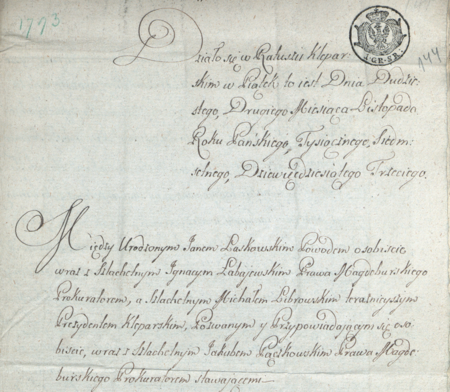 1793
4 GR: SR.
144
Działo się w Ratuszu Klepar
skim w Piątek to iest Dnia Dwdzie
stego, Drugiego Miesiąca Listopada
Roku Pańskiego, Tysiącznego, Siedm
setnego, Dziewięćdziesiątego Trzeciego.
Między Urodzonym Janem Laskowskim Powodem osobiście
wraz z Szlachetnym Ignacym Łabajewskim Prawa Magdeburskiego
Prokuratorem, a Szlachetnym Michałem Librowskim teraźnieyszym
Prezydentem Kleparskim, Pozwanym y Przypowiadaiącym się oso
biście, wraz z Szlachetnym Jakubem Pączkowskim Prawa Magde
burskiego Prokuratorem stawaiącemi